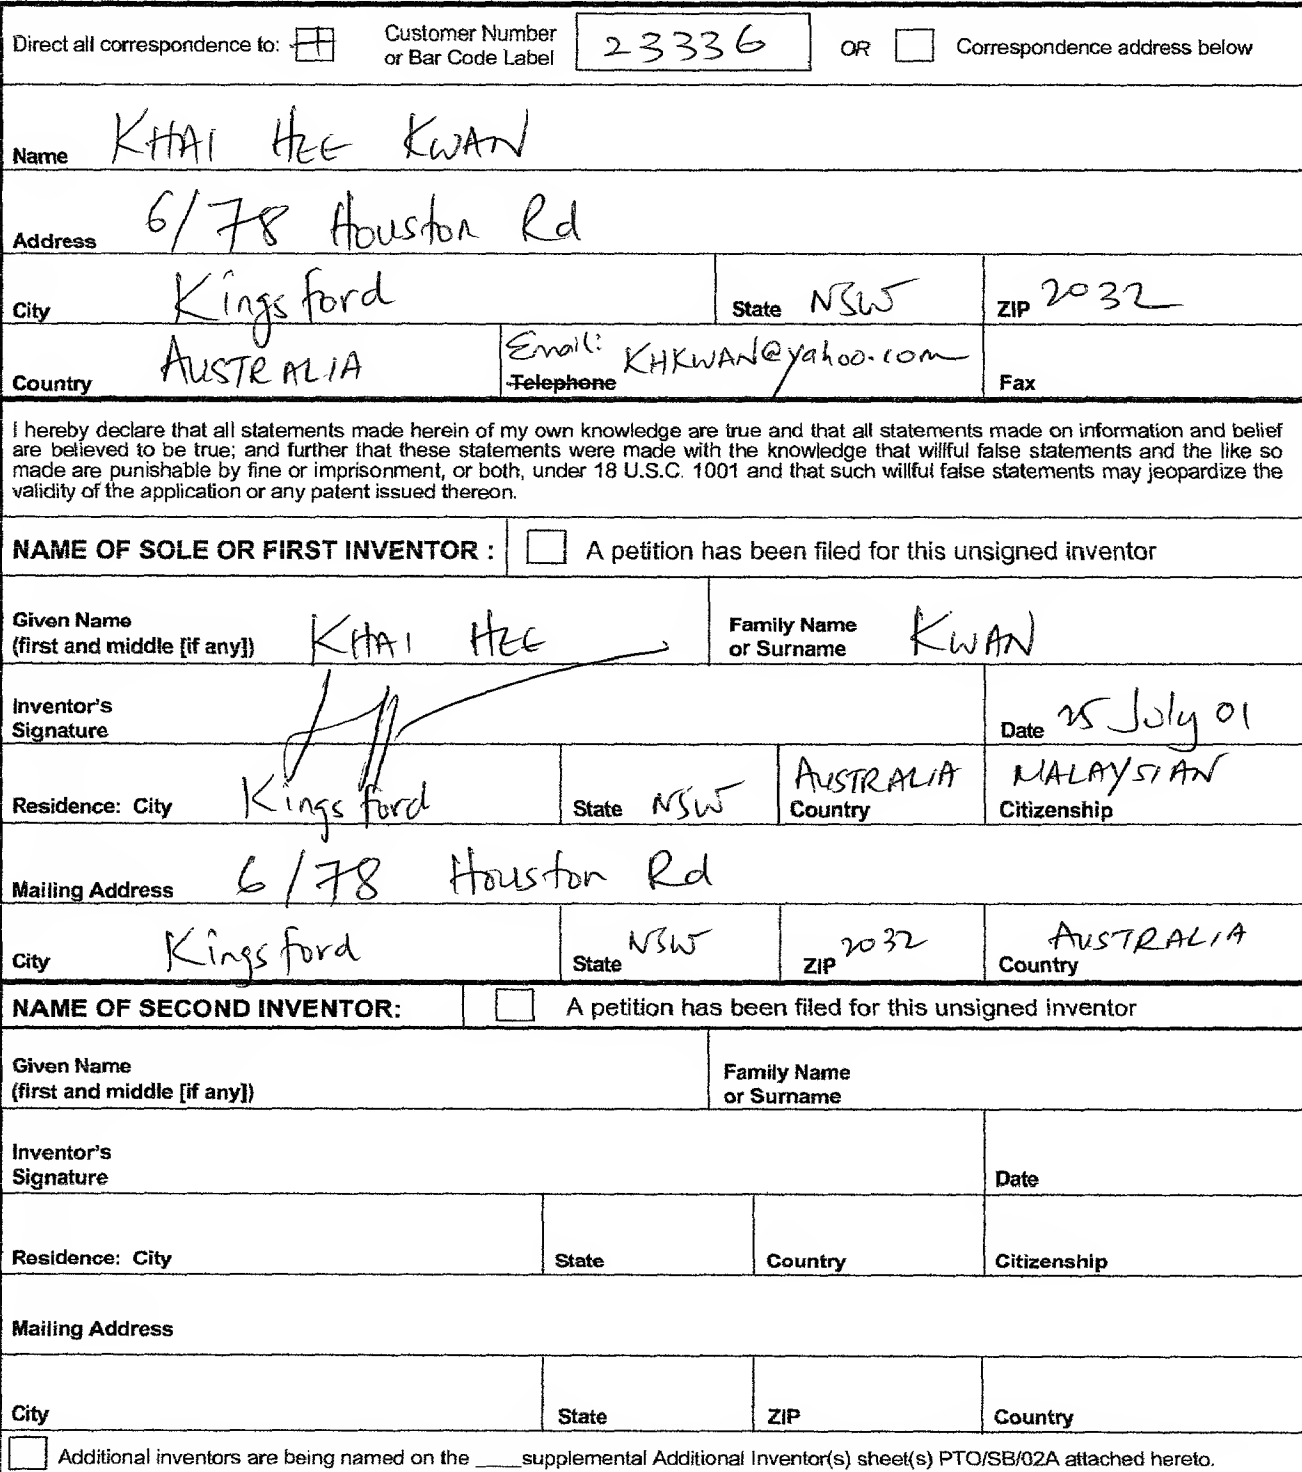 Direct all correspondence to: Customer Number or Bar Code Label 23336 OR Correspondence address below
Name KHAI HEE KWAN
Address 6/78 Houston Rd
City Kingsford State NSW ZIP 2032
Country AUSTRALIA Email: Telephone KHKWAN@yahoo.com Fax
I hereby declare that all statements made herein of my own knowledge are true and that all statements made on information and belief
are believed to be true; and further that these statements were made with the knowledge that willful false statements and the like so
made are punishable by fine or imprisonment, or both, under 18 U.S.C. 1001 and that such willful false statements may jeopardize the
validity of the application or any patent issued thereon.
NAME OF SOLE OR FIRST INVENTOR : A petition has been filed for this unsigned inventor
Given Name
(first and middle [if any]) KHAI HEE Family Name or Surname KWAN
Inventor's
Signature Date 25 July 01
Residence: City Kingsford State NSW AUSTRALIA Country MALAYSIAN Citizenship
Mailing Address 6/78 Houston Rd
City Kingsford State NSW ZIP 2032 AUSTRALIA Country
NAME OF SECOND INVENTOR: A petition has been filed for this unsigned inventor
Given Name
(first and middle [if any]) Family Name or Surname
Inventor's
Signature Date
Residence: City State Country Citizenship
Mailing Address
City State ZIP Country
Additional inventors are being named on the ____supplemental Additional Inventor(s) sheet(s) PTO/SB/02A attached hereto.